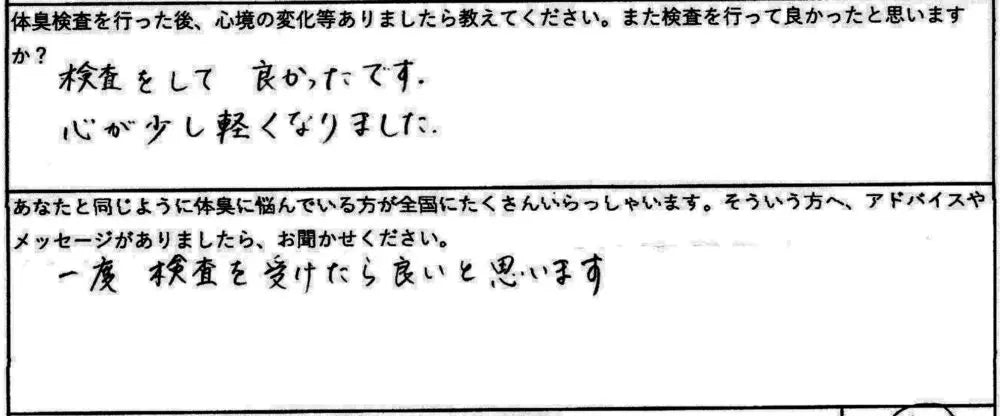 体臭検査を行った後、心境の変化等ありましたら教えてください。また検査を行って良かったと思います
か？
検査をして 良かったです.
心が少し軽くなりました.
あなたと同じように体臭に悩んでいる方が全国にたくさんいらっしゃいます。そういう方へ、アドバイスや
メッセージがありましたら、お聞かせください。
一度 検査を受けたら良いと思います